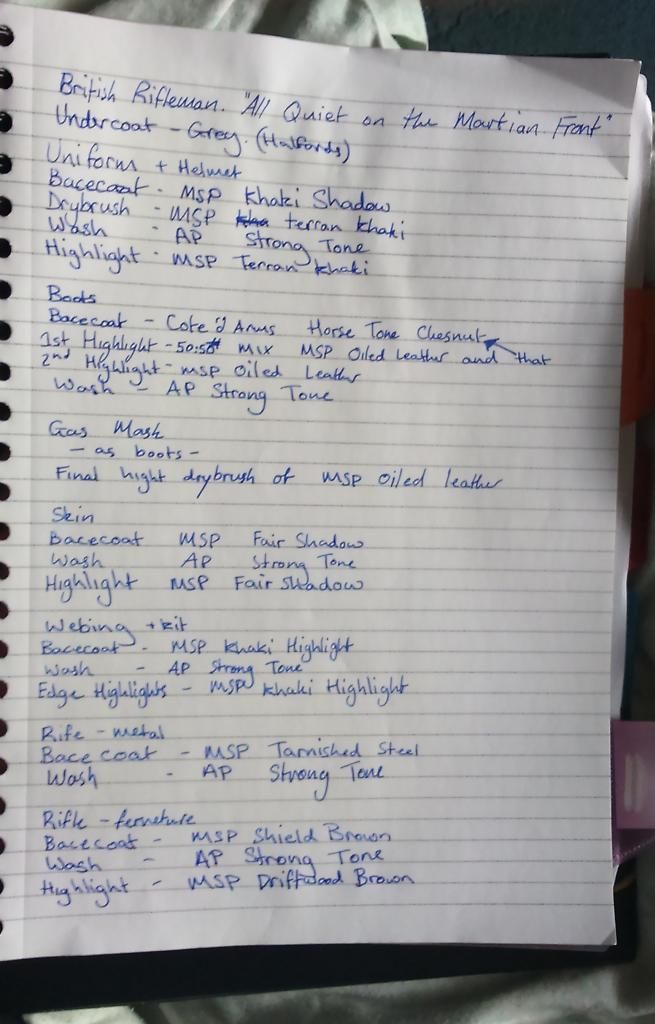 British Rifleman. "All Quiet on the Martian Front"
Undercoat - Grey. (Halfords)
Uniform + Helmet
Bacecoat - MSP Khaki Shadow
Drybrush - MSP terran khaki
Wash - AP Strong Tone
Highlight - MSP Terran khaki
Boots
Bacecoat - Cote d'Arms Horse Tone Chesnut
1st Highlight - 50:50 mix MSP Oiled Leather and that
2nd Highlight - MSP Oiled Leather
Wash - AP Strong Tone
Gas Mask
- as boots -
Final hight drybrush of MSP oiled leather
Skin
Bacecoat MSP Fair Shadow
Wash AP Strong Tone
Highlight MSP Fair Shadow
Webing + kit
Bacecoat - MSP Khaki Highlight
Wash - AP Strong Tone
Edge Highlights - MSP Khaki Highlight
Rife - metal
Bace coat - MSP Tarnished Steel
Wash - AP Strong Tone
Rifle - ferneture
Bacecoat - MSP Shield Brown
Wash - AP Strong Tone
Highlight - MSP Driftwood Brown